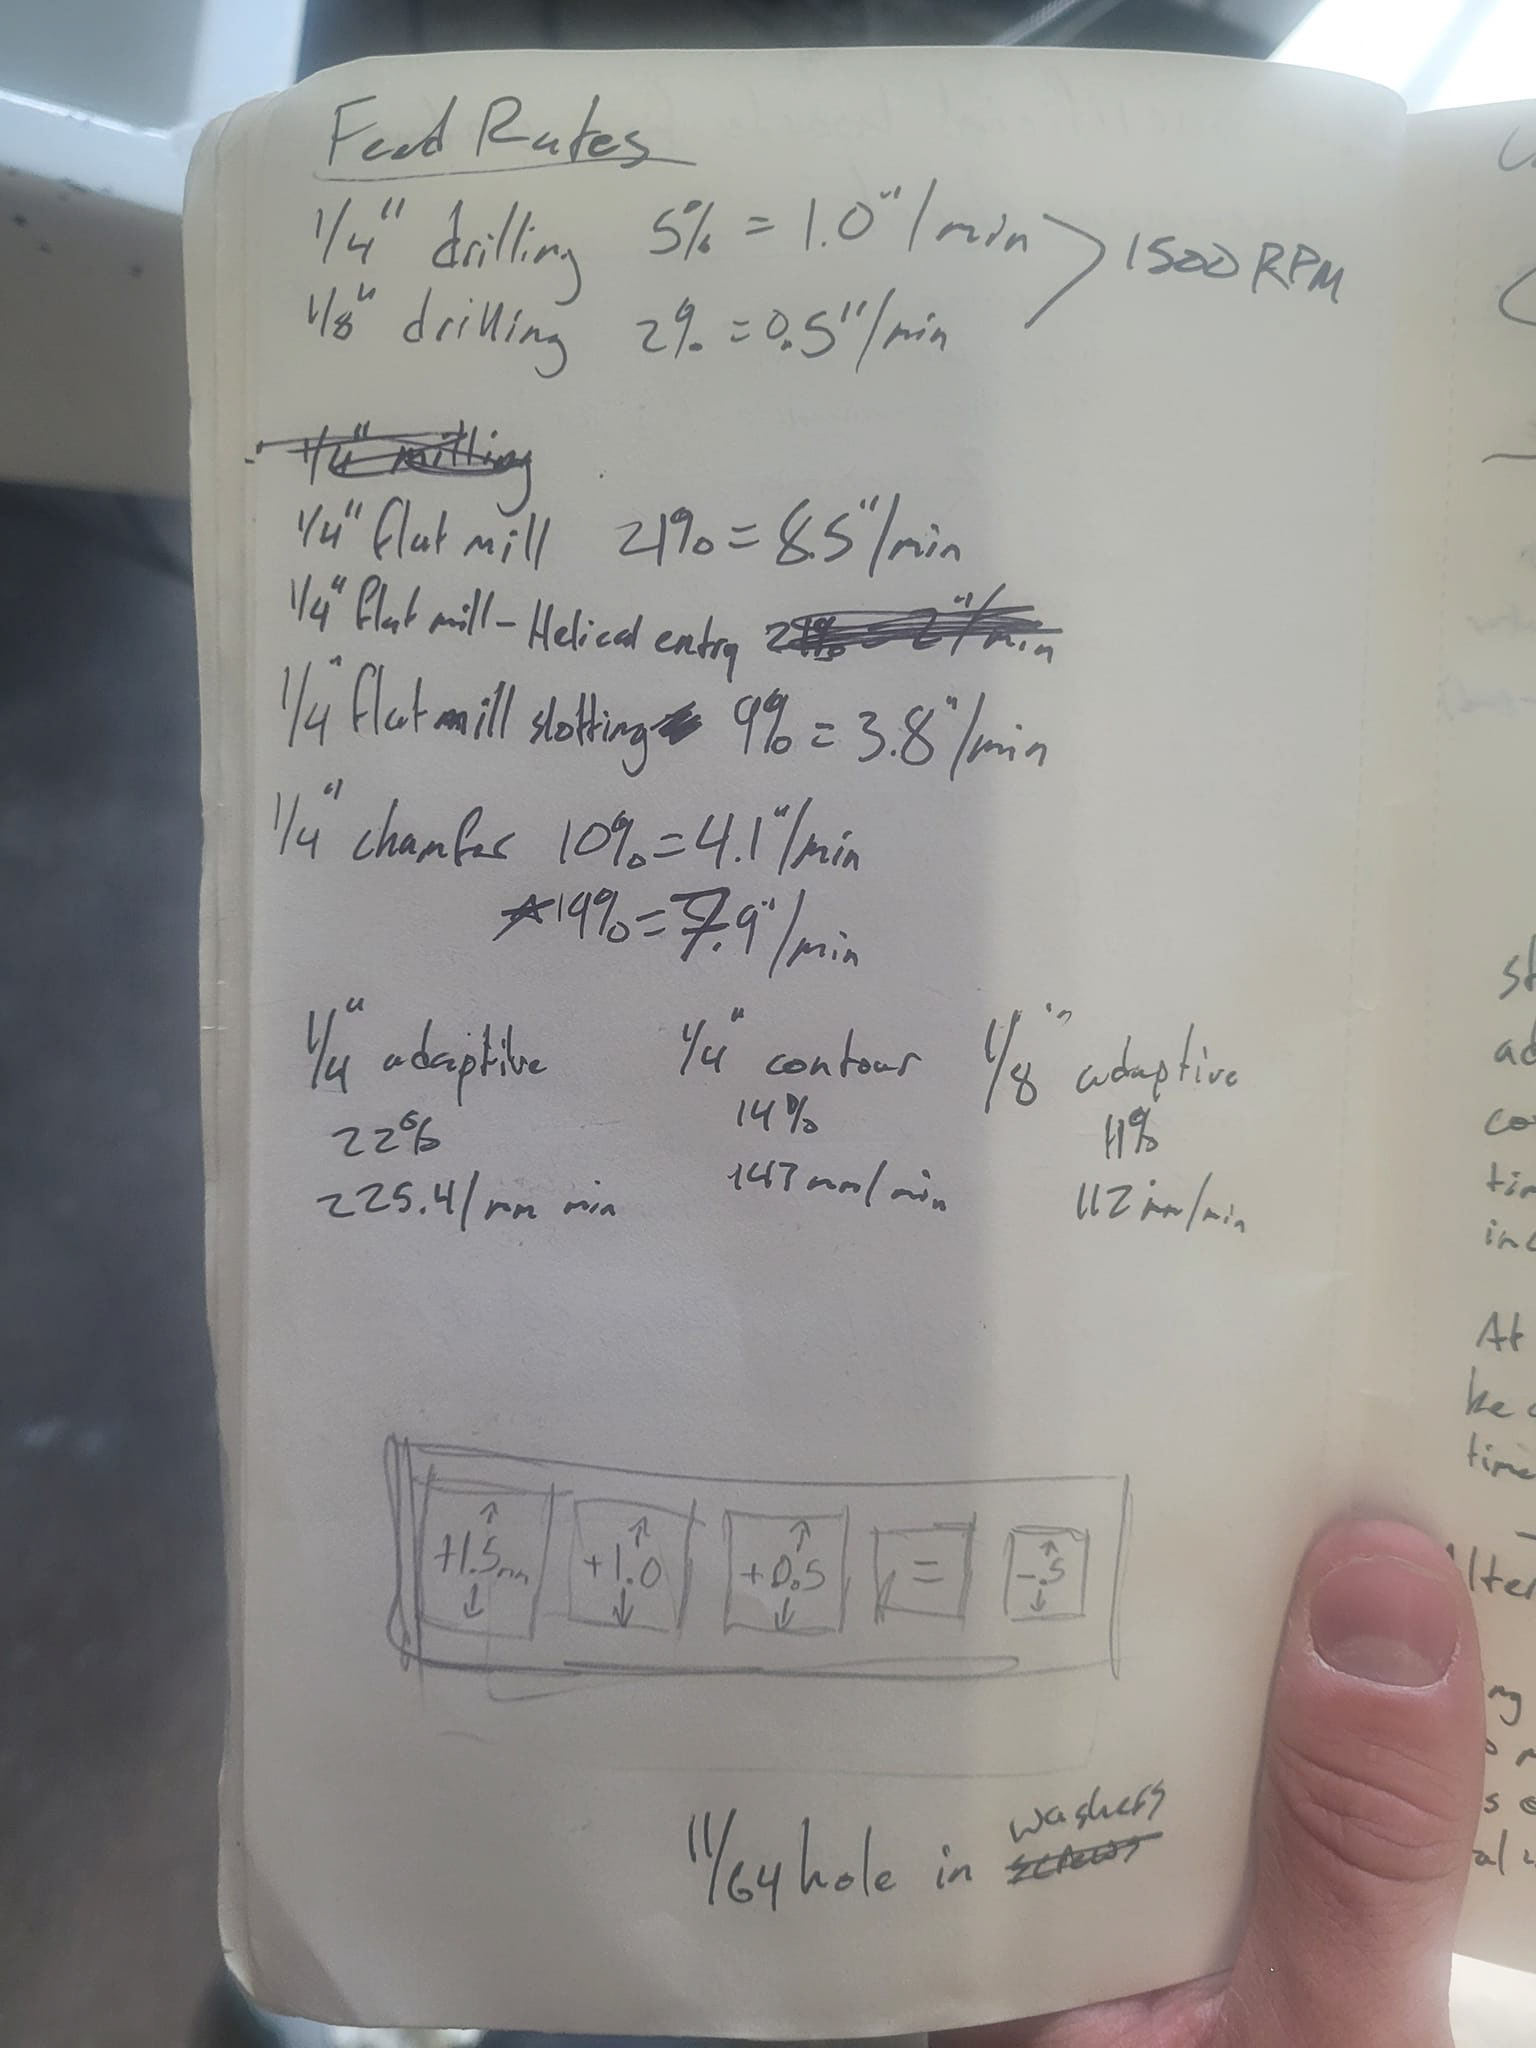 Feed Rates
1/4" drilling 5% = 1.0"/min
1500 RPM
1/8" drilling 2% = 0.5"/min
1/4" milling
1/4" flat mill 21% = 8.5"/min
1/4" flat mill - Helical entry 2"/min
1/4" flat mill slotting 9% = 3.8"/min
1/4" chamfer 10% = 4.1"/min
19% = 7.9"/min
1/4" adaptive 1/4" contour 1/8" adaptive
22% 14% 11%
225.4/mm min 147 mm/min 112 mm/min
+1.5mm +1.0 +0.5 = -.5
washers
11/64 hole in screws
st
co
At
be
time
Alter